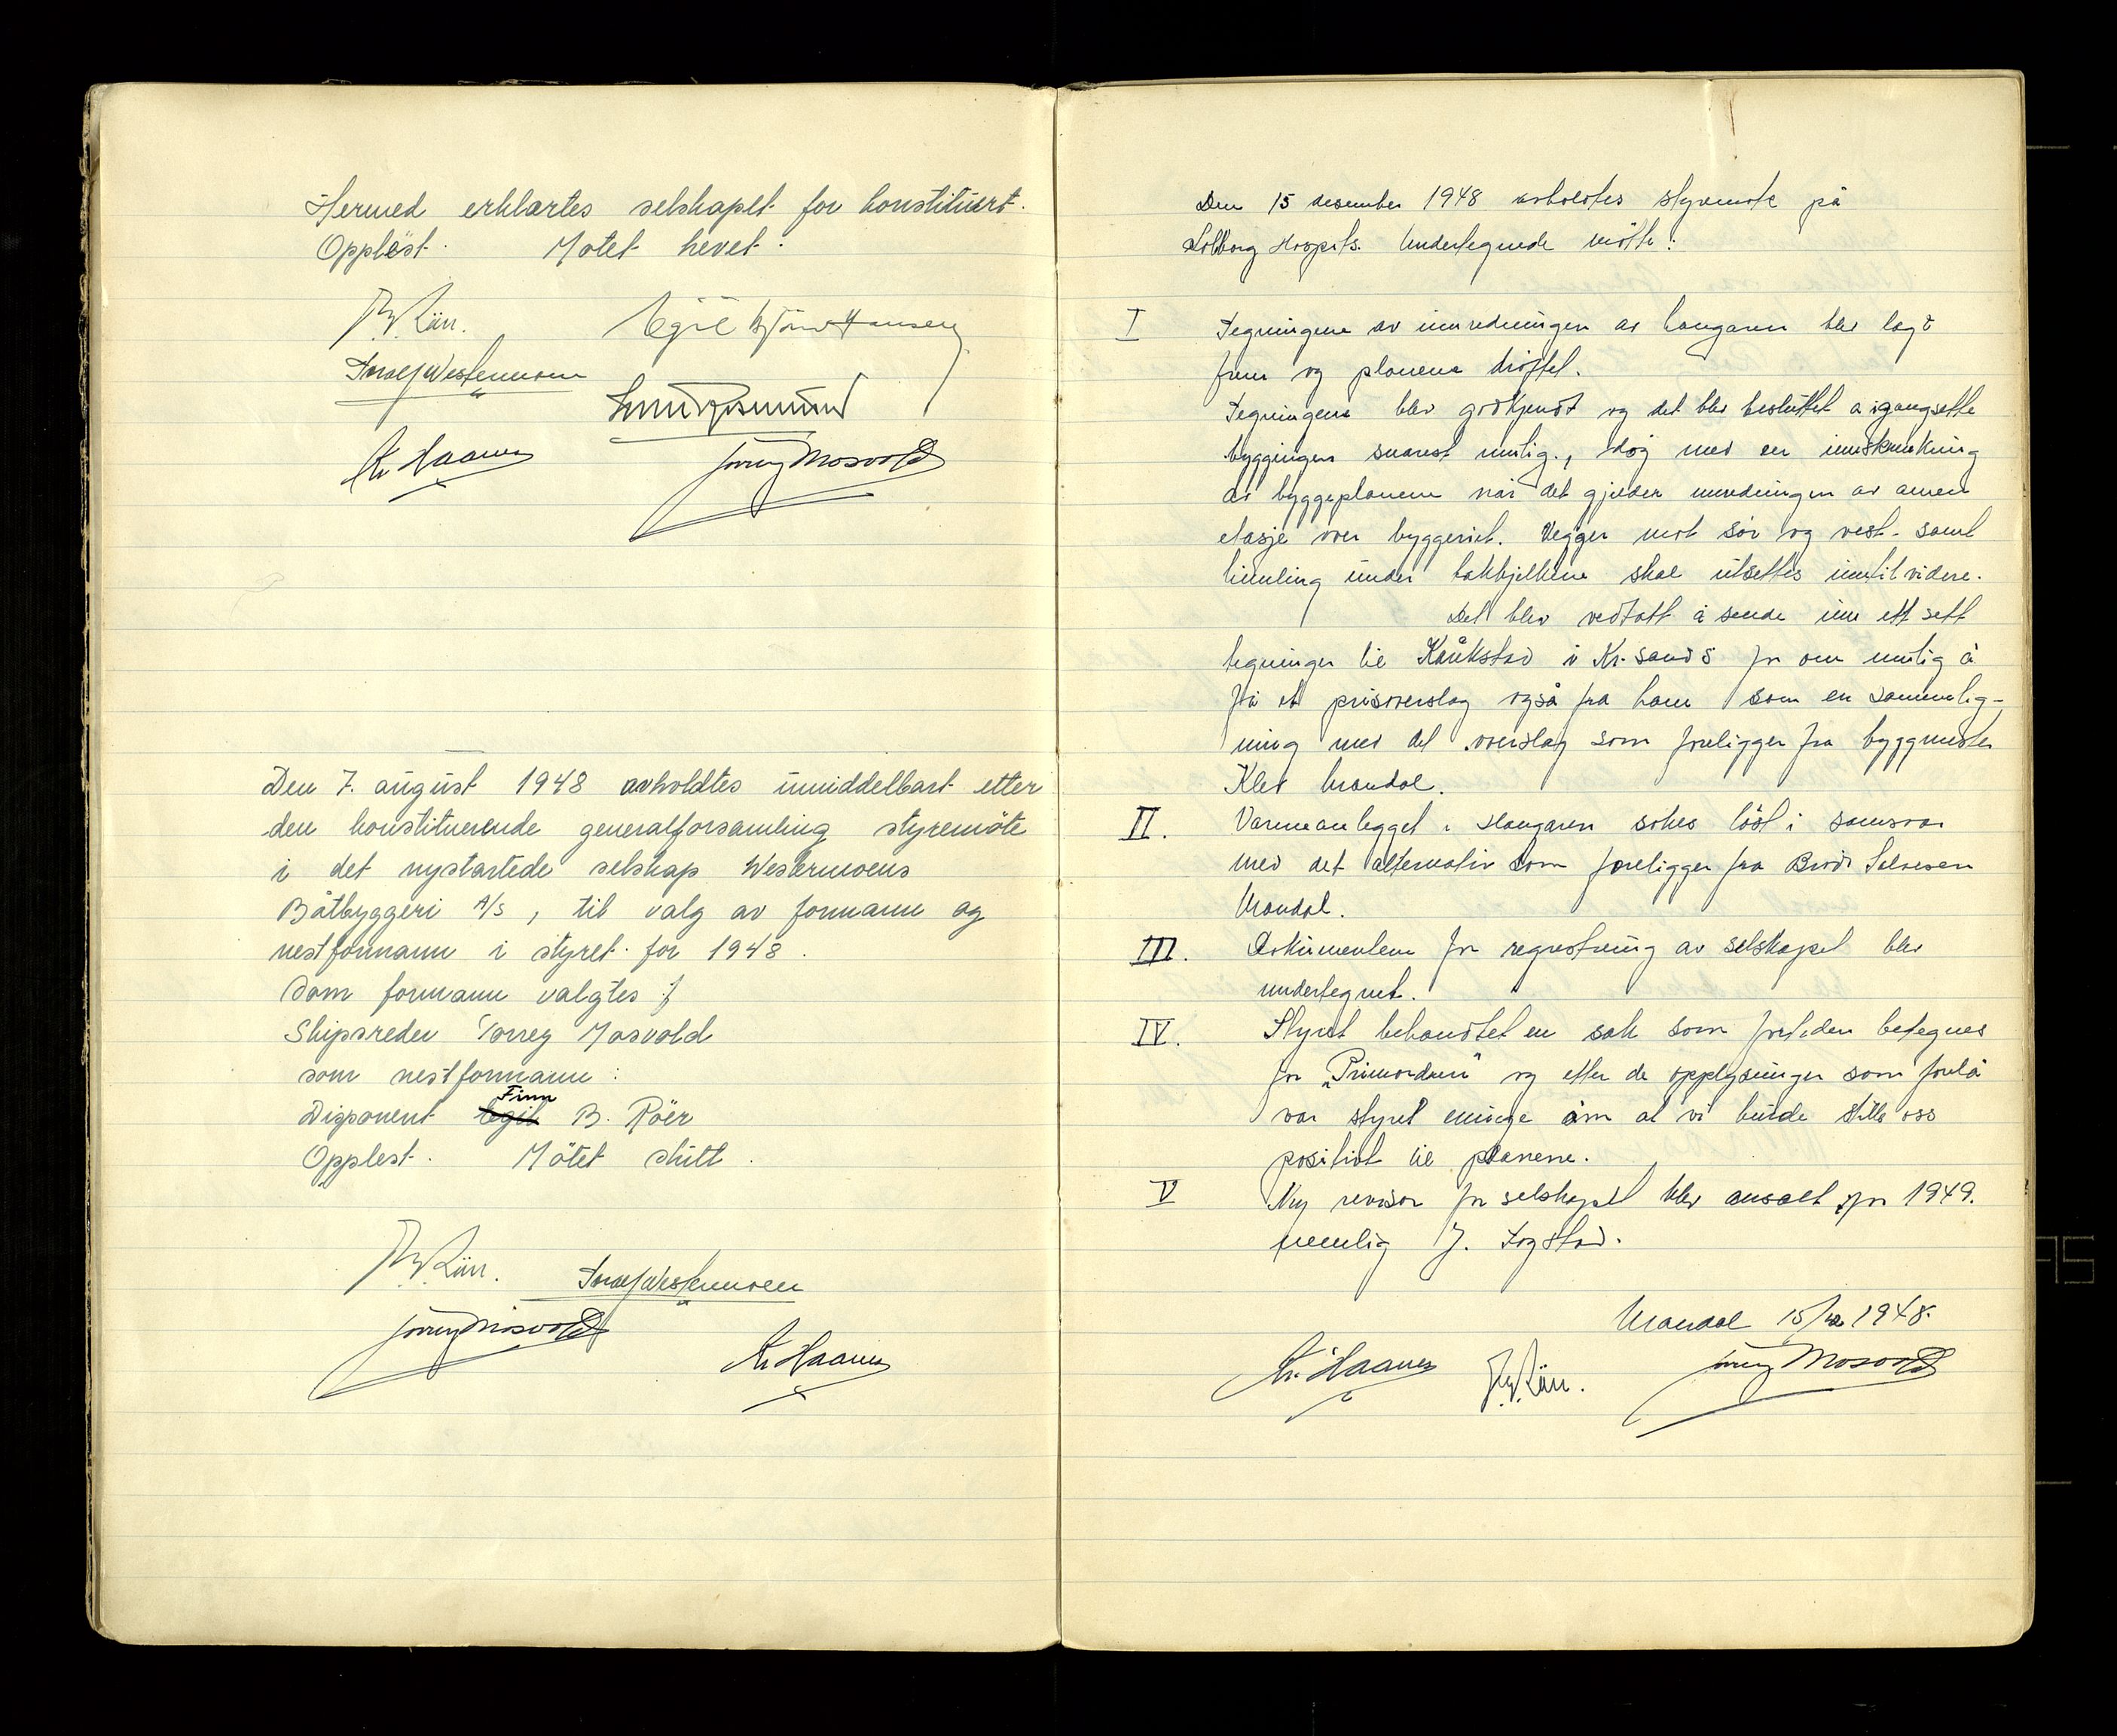 Hermed erklærtes selskapet for konstituert.
Opplest. Møtet hevet.
Egil Bjørn Hansen
Toralf Westermoen
Kr. Haanes
Torrey Mosvold
Den 7. august 1948 avholdtes umiddelbart etter
den konstituerende generalforsamling styremöte
i det nystartede selskap Westermoens
Båtbyggeri A/S, til valg av formann og
nestformann i styret for 1948.
Som formann valgtes :
Skipsreder Torrey Mosvold
som nestformann :
Finn
Disponent Egil B. Röer
Opplest. Mötet slutt.
Toralf Westermoen
Torrey Mosvold
Kr. Haanes
Den 15 desember 1948 avholdtes styremøte på
Solborg Hospits. Undertegnede møtte:
I Tegningene av innredningen av hangaren blev lagt
frem og planene drøftet.
Tegningene blev godkjendt og det blev besluttet a igangsette
byggingen snarest mulig., dog med en innskrenkning
av byggeplanene når det gjelder innredningen av annen
etasje over byggeriet. Vegger mot sør og vest. samt
himling under takbjelkene skal utsettes inntil videre.
Det blev vedtatt å sende inn ett sett
tegninger til Kåukstad i Kr. sand S for om mulig å
få et prisoverslag også fra ham som en sammenlig-
ning med det overslag som foreligger fra byggmester
Klev Mandal.
II. Varmeanlegget i Hangaren søkes løst i samsvar
med det alternativ som foreligger fra Brødr. Selvesen
Mandal.
III. Dokumentene for registrering av selskapet blev
undertegnet.
IV. Styret behandtet en sak som foreløbig betegnes
for „Primordum" og etter de opplysninger som forelå
var styret eninge om at vi burde stille oss
positivt til planene.
V Ny revisor for selskapet blev ansatt for 1949.
nemlig J. Fogstad.
Mandal 15/12 1948.
Kr. Haanes
Torrey Mosvold